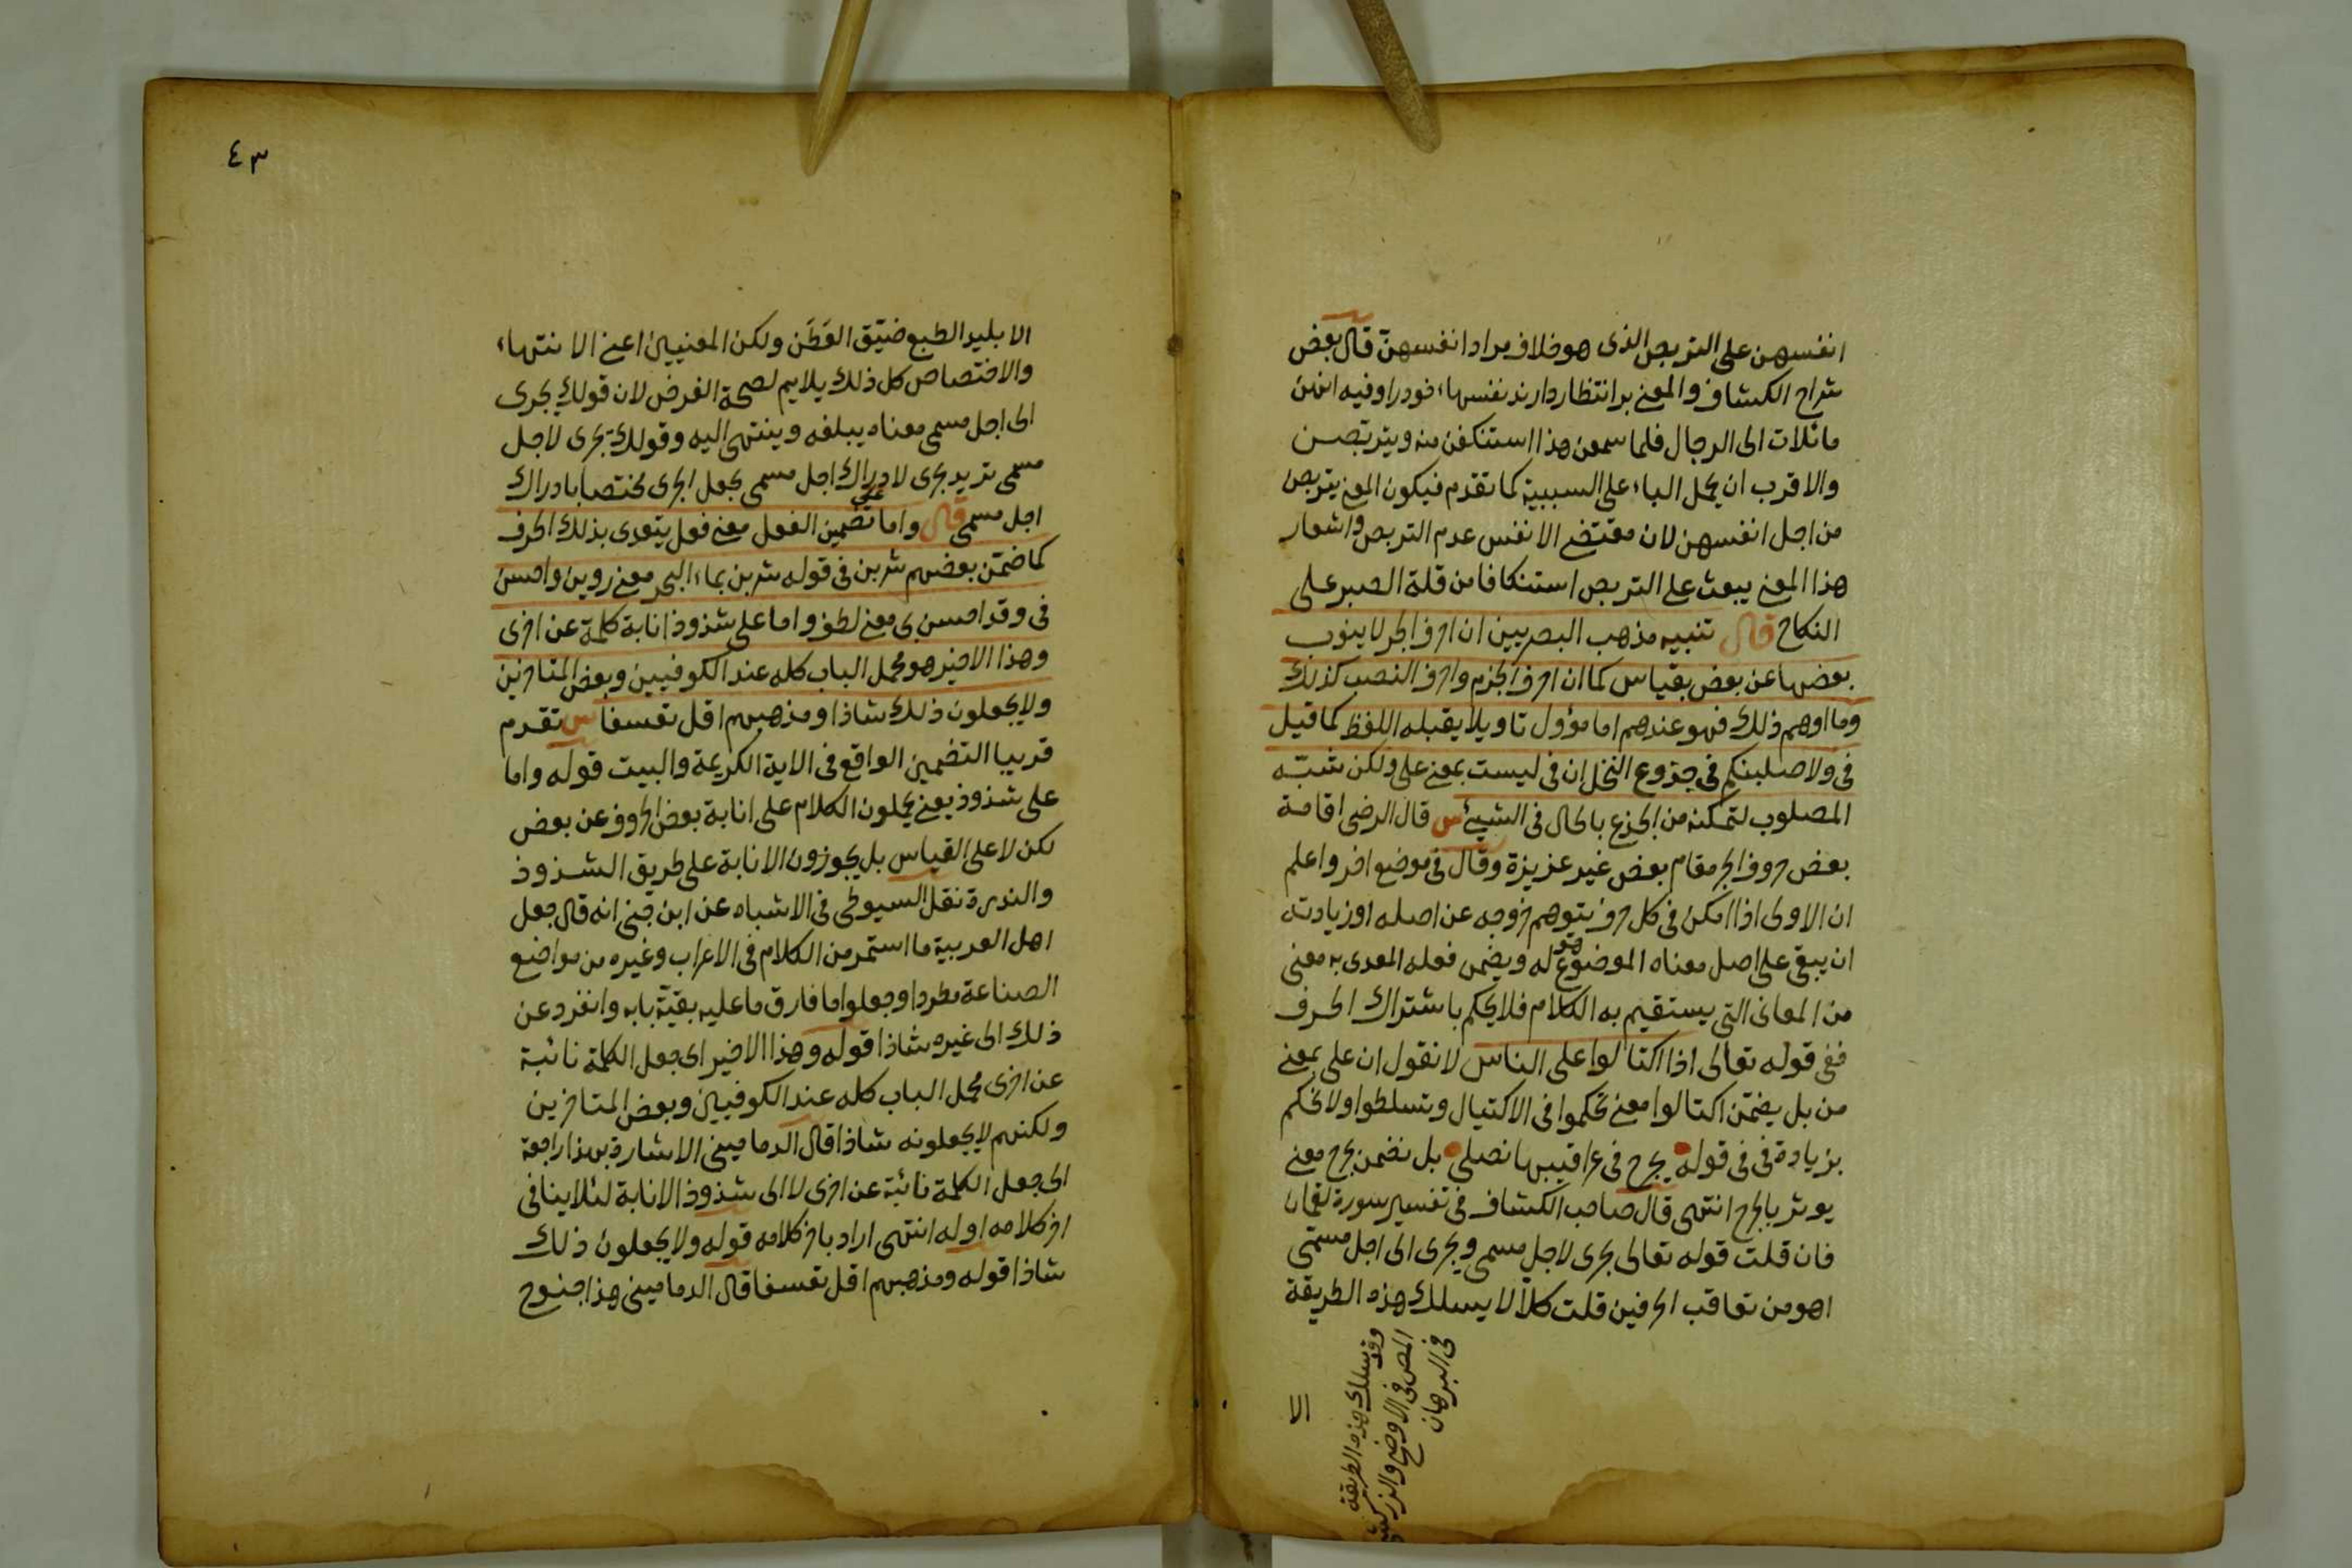 انفسهن على التربص الذى هو خلاف مراد انفسهن قال بعض
شراح الكشاف والمعنى برانتظار دارند نفسهاء خود را وفيه انهن
مائلات الى الرجال فلما سمعن هذا استنكفن منه ويتربصن
والاقرب ان يحمل الباء على السببية كما تقدم فيكون المعنى يتربصن
من اجل انفسهن لان مقتضى الانفس عدم التربص واشعار
هذا المعنى يبعث على التربص استنكافا من قلة الصبر على
النكاح قال تنبيه مذهب البصريين ان احرف الجر لا ينوب
بعضها عن بعض بقياس كما ان احرف الجزم واحرف النصب كذلك
وما اوهم ذلك فهو عندهم اما مؤول تاويلا يقبله اللفظ كما قيل
فى ولاصلبنكم فى جذوع النخل ان فى ليست بمعنى على ولكن شبه
المصلوب لتمكنه من الجذع بالحال فى الشيئ س قال الرضى اقامة
بعض حروف الجر مقام بعض غير عزيزة وقال فى موضع اخر واعلم
ان الاولى اذا امكن فى كل حرف يتوهم خروجه عن اصله او زيادته
ان يبقى على اصل معناه الموضوع هو له ويضمن فعله المعدى به معنى
من المعانى التى يستقيم به الكلام فلا يحكم باشتراك الحرف
ففى قوله تعالى اذا اكتالوا على الناس لا نقول ان على بمعنى
من بل يضمن اكتالوا معنى تحكموا فى الاكتيال وتسلطوا ولا نحكم
بزيادة فى فى قوله يجرح فى عراقيبها نصلى بل نضمن يجرح معنى
يوثر بالجرح انتهى قال صاحب الكشاف فى تفسير سورة لقمان
فان قلت قوله تعالى يجرى لاجل مسمى ويجرى الى اجل مسمى
اهو من تعاقب الحرفين قلت كلا لا يسلك هذه الطريقة
وقد سلك هذه الطريقة
المص فى الاوضح والزركشى
فى البرهان
الا
٤٣
الا بليد الطبع ضيّق العَطَن ولكن المعنيين اعنى الانتهاء
والاختصاص كل ذلك يلايم لصحة الغرض لان قولك يجرى
الى اجل مسمى معناه يبلغه وينتهى اليه وقولك يجرى لاجل
مسمى تريد يجرى لادراك اجل مسمى يجعل الجرى مختصا بادراك
اجل مسمى قال واما على تضمين الفعل معنى فعل يتعدى بذلك الحرف
كما ضمّن بعضهم شربن فى قوله شربن بماء البحر معنى روين واحسن
فى وقد احسن بى معنى لطف واما على شذوذ انابة كلمة عن اخرى
وهذا الاخير هو محمل الباب كله عند الكوفيين وبعض المتاخرين
ولا يجعلون ذلك شاذا ومذهبهم اقل تعسفا س تقدم
قريبا التضمين الواقع فى الاية الكريمة والبيت قوله واما
على شذوذ يعنى يحملون الكلام على انابة بعض الحروف عن بعض
لكن لا على القياس بل يجوزون الانابة على طريق الشذوذ
والندرة نقل السيوطى فى الاشباه عن ابن جنى انه قال جعل
اهل العربية ما استمر من الكلام فى الاعراب وغيره من مواضع
الصناعة مطردا وجعلوا ما فارق ما عليه بقيّة بابه وانفرد عن
ذلك الى غيره شاذا قوله وهذا الاخير اى جعل الكلمة نائبة
عن اخرى محمل الباب كله عند الكوفيين وبعض المتاخرين
ولكنهم لا يجعلونه شاذا قال الدمامينى الاشارة بهذا راجعة
الى جعل الكلمة نائبة عن اخرى لا الى شذوذ الانابة لئلا ينافى
اخر كلامه اوله انتهى اراد باخر كلامه قوله ولا يجعلون ذلك
شاذا قوله ومذهبهم اقل تعسفا قال الدمامينى هذا جنوح